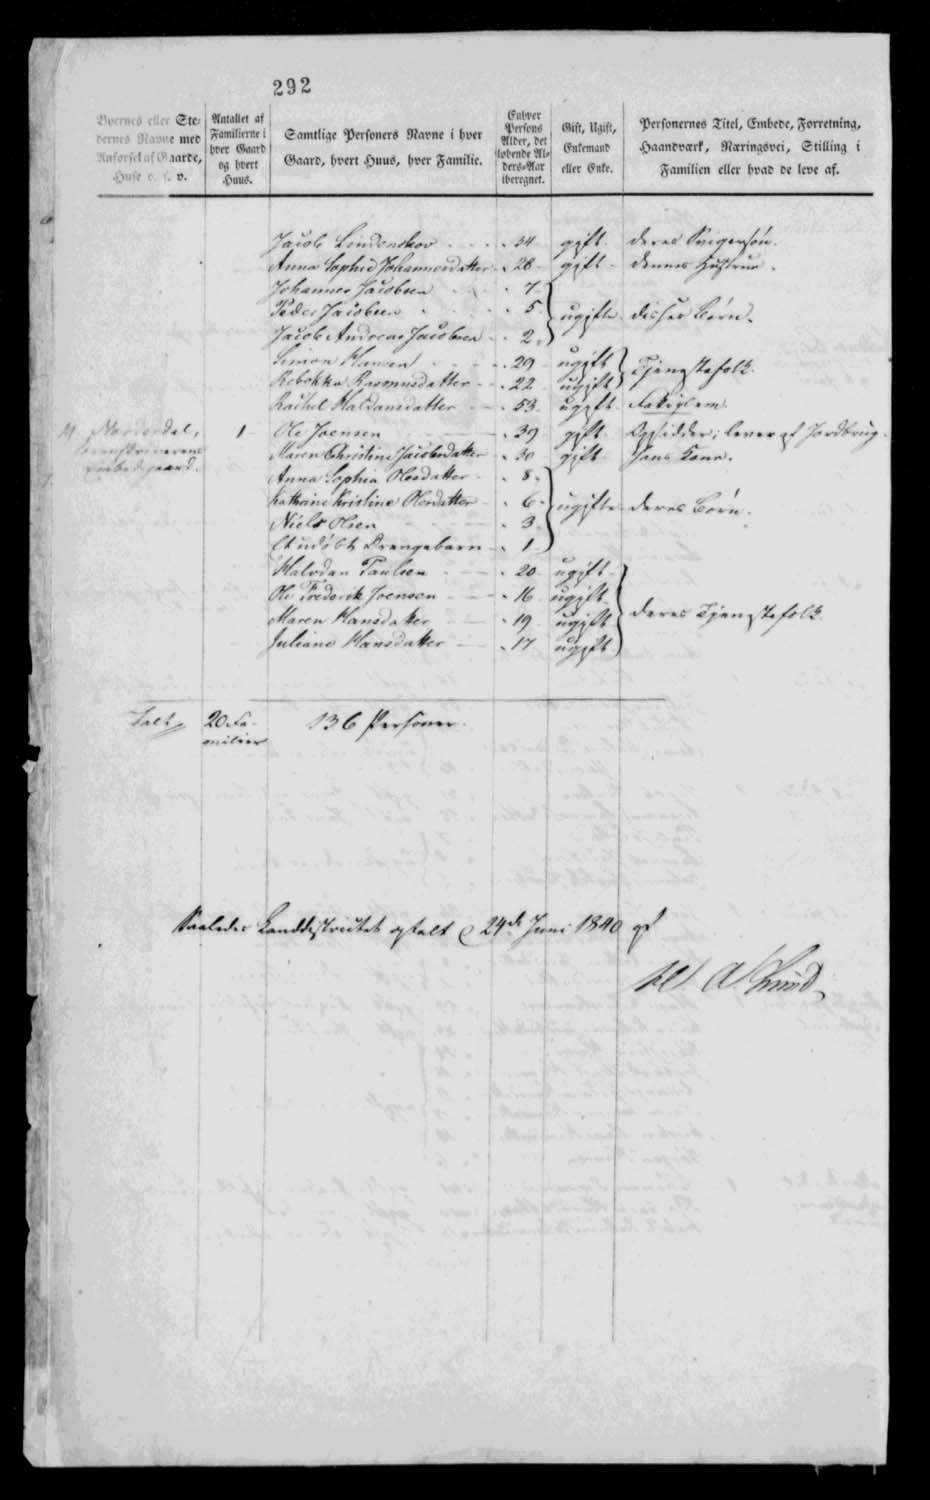 292
Byernes eller Ste-
dernes Navne med
Anførsel af Gaarde,
Huse o. s. v.
Antallet af
Familierne i
hver Gaard
og hvert
Huus.
Samtlige Personers Navne i hver
Gaard, hvert Huus, hver Familie.
Enhver
Persons
Alder, det
løbende Al-
ders-Aar
iberegnet.
Gift, Ugift,
Enkemand
eller Enke.
Personernes Titel, Embede, Forretning,
Haandværk, Næringsvei, Stilling i
Familien eller hvad de leve af.
Jacob Lindenskov 34 gift deres Svigersøn.
Anna Sophie Johannesdatter 28 gift dennes Hustrue.
Johannes Jacobsen 7
Peder Jacobsen 5 ugifte disses Børn.
Jacob Andreas Jacobsen 2
Simon Hansen 29 ugift Tjenestefolk.
Rebekka Rasmusdatter 22 ugift
Rachel Haldansdatter 53 ugift Fattiglem.
Nordredal, 1 Ole Joensen 39 gift Opsidder; lever af Jordbrug.
Sorenskriverens Maren Christine Jacobsdatter 30 gift hans Kone.
Embedsgaard. Anna Sophia Olesdatter 8
Kathrine Kristine Olesdatter 6 ugifte deres Børn.
Niels Olsen 3
Et udøbt Drengebarn 1
Halvdan Paulsen 20 ugift
Ole Frederik Joensen 16 ugift
Maren Hansdatter 19 ugift deres Tjenestefolk.
Juliane Hansdatter 17 ugift
Ialt 20 Fa- 136 Personer.
milier
Saaledes Landdistrictet optalt d 24de Juni 1840 af
Lund